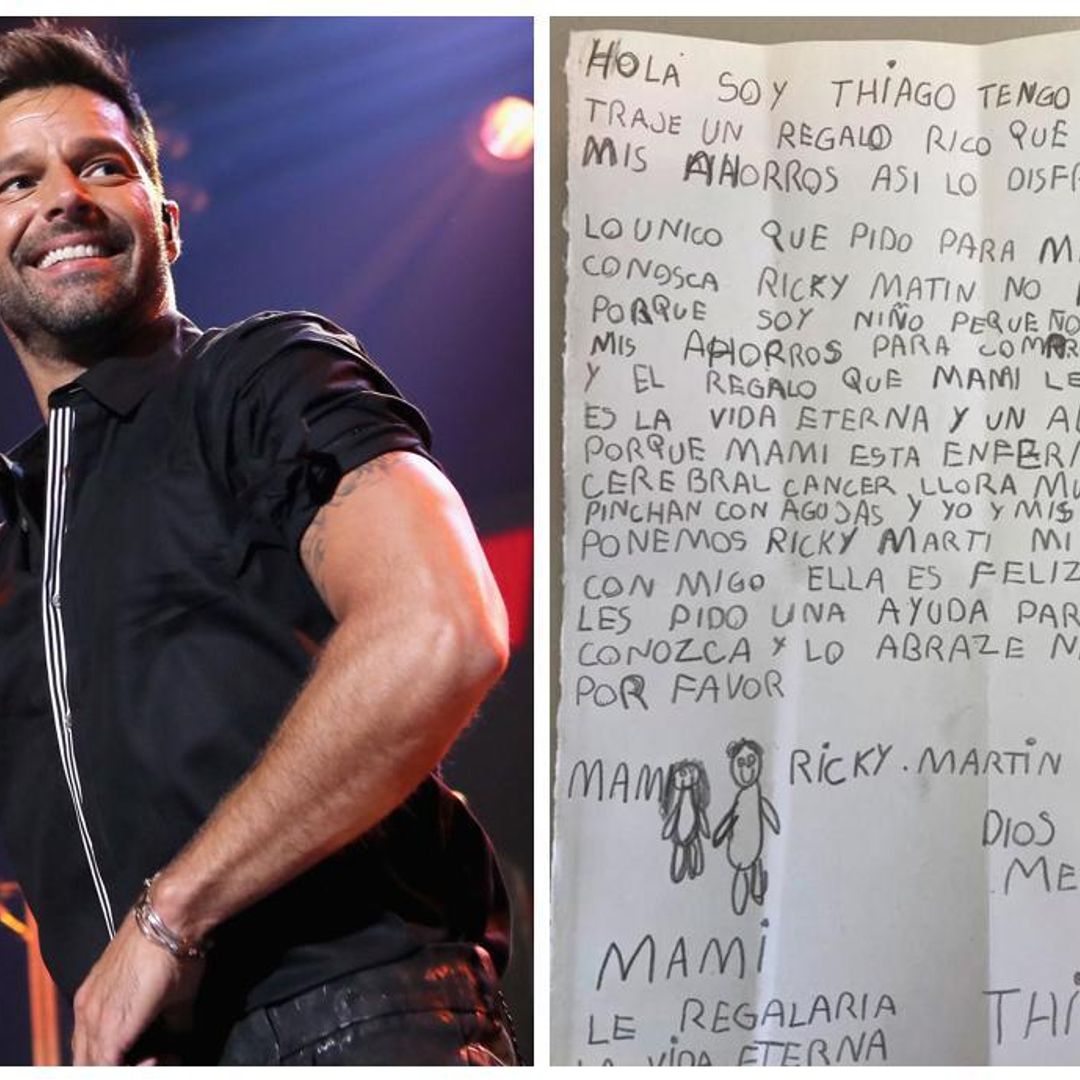 HOLA SOY THIAGO TENGO
TRAJE UN REGALO RICO QUE
MIS AHORROS ASI LO
LO UNICO QUE PIDO PARA
CONOSCA RICKY MATIN NO
PORQUE SOY NIÑO PEQUEÑO
MIS AHORROS PARA
Y EL REGALO QUE MAMI LE
ES LA VIDA ETERNA Y UN
PORQUE MAMI ESTA
CEREBRAL CANCER LLORA
PINCHAN CON AGUJAS Y YO Y MIS
PONEMOS RICKY MARTI MI
CON MIGO ELLA ES FELIZ
LES PIDO UNA AYUDA
CONOZCA Y LO ABRAZE
POR FAVOR
MAMI RICKY. MARTIN
DIOS
MAMI
LE REGALARIA
LA VIDA ETERNA